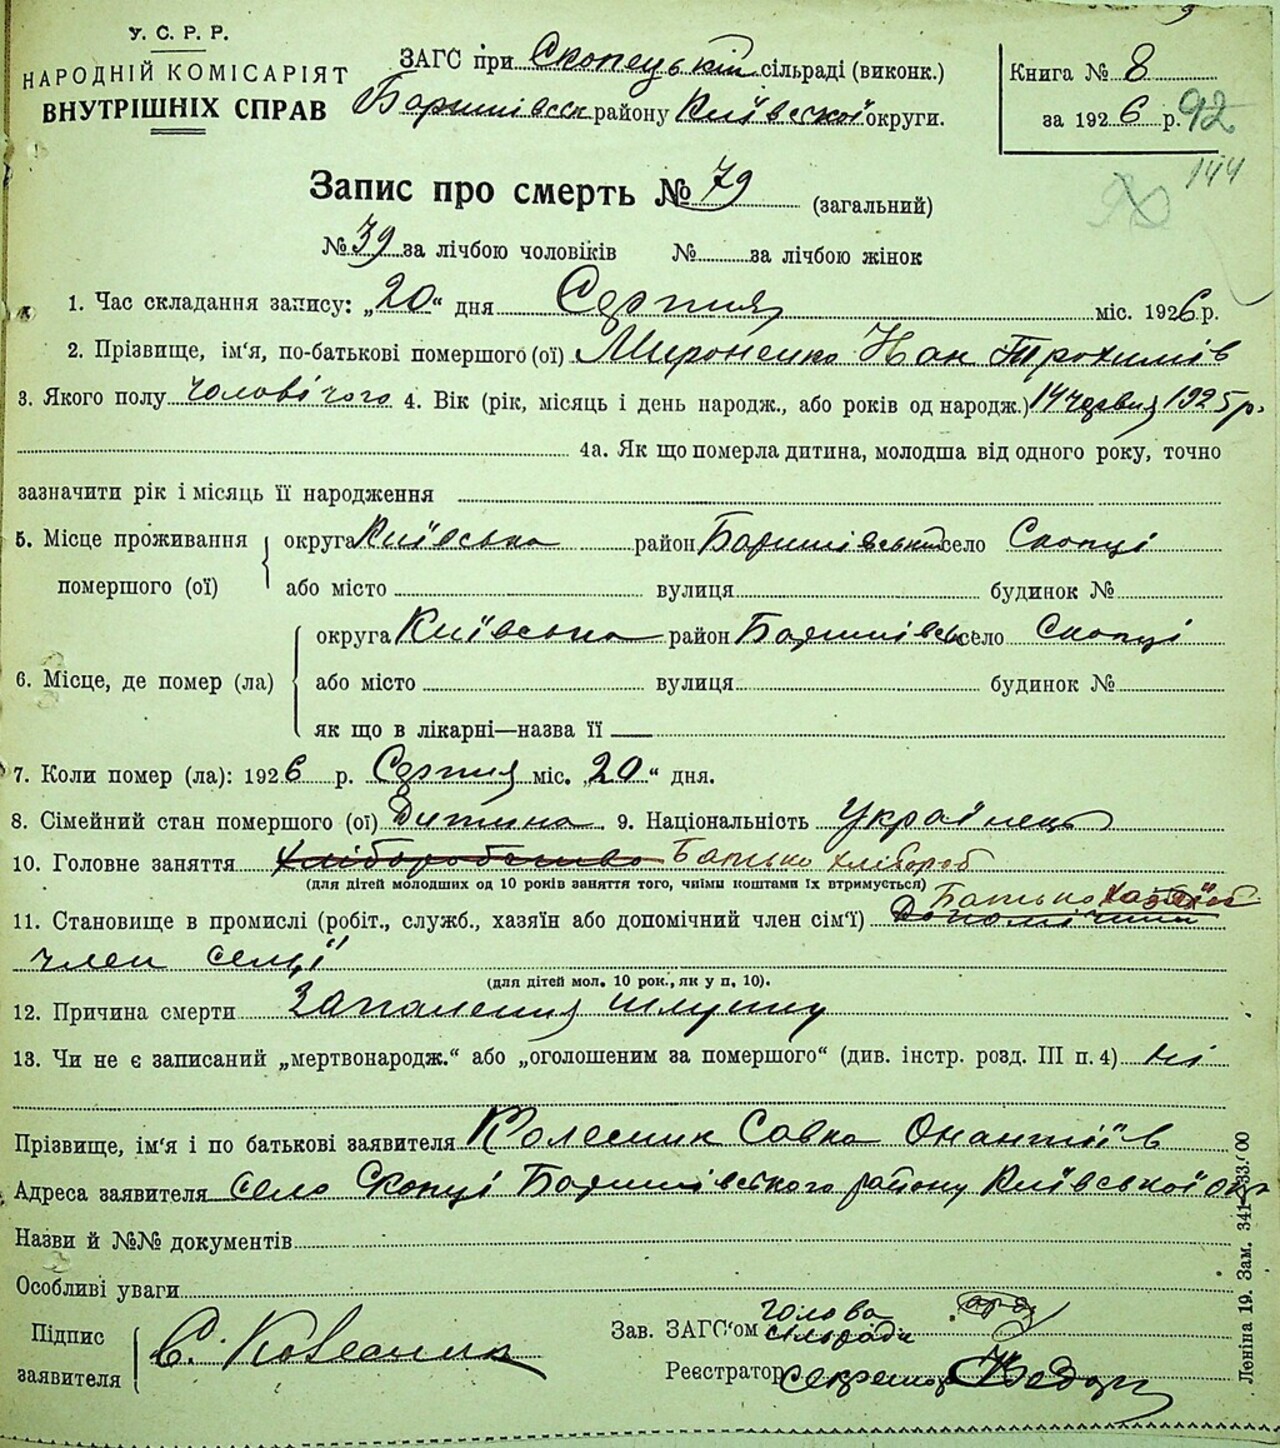 У. С. Р. Р.
НАРОДНІЙ КОМІСАРІЯТ
ВНУТРІШНІХ СПРАВ
ЗАГС при Скопецькій сільраді (виконк.)
Баришівськ району Київської округи.
Книга № 8
за 1926 р. 92
144
Запис про смерть № 79 (загальний)
№ 39 за лічбою чоловіків № за лічбою жінок
1. Час складання запису: „20" дня Серпня міс. 1926 р.
2. Прізвище, ім'я, по-батькові помершого (ої) Мироненко Іван Трохимів
3. Якого полу чоловічого 4. Вік (рік, місяць і день народж., або років од народж.) 14 червня 1925 р.
4а. Як що померла дитина, молодша від одного року, точно
зазначити рік і місяць її народження
5. Місце проживання помершого (ої) округа Київська район Баришівський село Скопці
або місто вулиця будинок №
6. Місце, де помер (ла) округа Київська район Баришівськ село Скопці
або місто вулиця будинок №
як що в лікарні—назва її
7. Коли помер (ла): 1926 р. Серпня міс. „20" дня.
8. Сімейний стан помершого (ої) Дитина 9. Національність Українець
10. Головне заняття Хліборобство Батько хлібороб
(для дітей молодших од 10 років заняття того, чиїми коштами їх втримується)
Батько хазяїн
11. Становище в промислі (робіт., служб., хазяїн або допомічний член сім'ї) Допомічний
член семї
(для дітей мол. 10 рок., як у п. 10).
12. Причина смерти Запалення шлунку
13. Чи не є записаний „мертвонародж." або „оголошеним за помершого" (див. інстр. розд. III п. 4) ні
Прізвище, ім'я і по батькові заявителя Колесник Савка Онантіїв
Адреса заявителя село Скопці Баришівського району Київської окр
Назви й №№ документів
Особливі уваги
Підпис заявителя С. Колесник
Зав. ЗАГС'ом Голова сільради
Реєстратор секретар
Леніна 19. Зам.